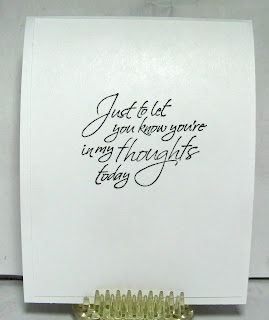 Just to let
you know you're
in my thoughts
today